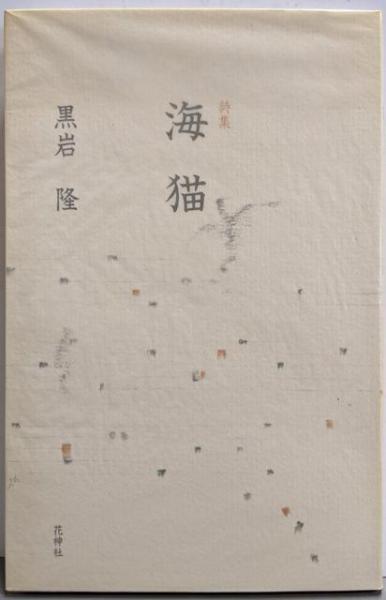 詩集
海猫
黒岩 隆
花神社